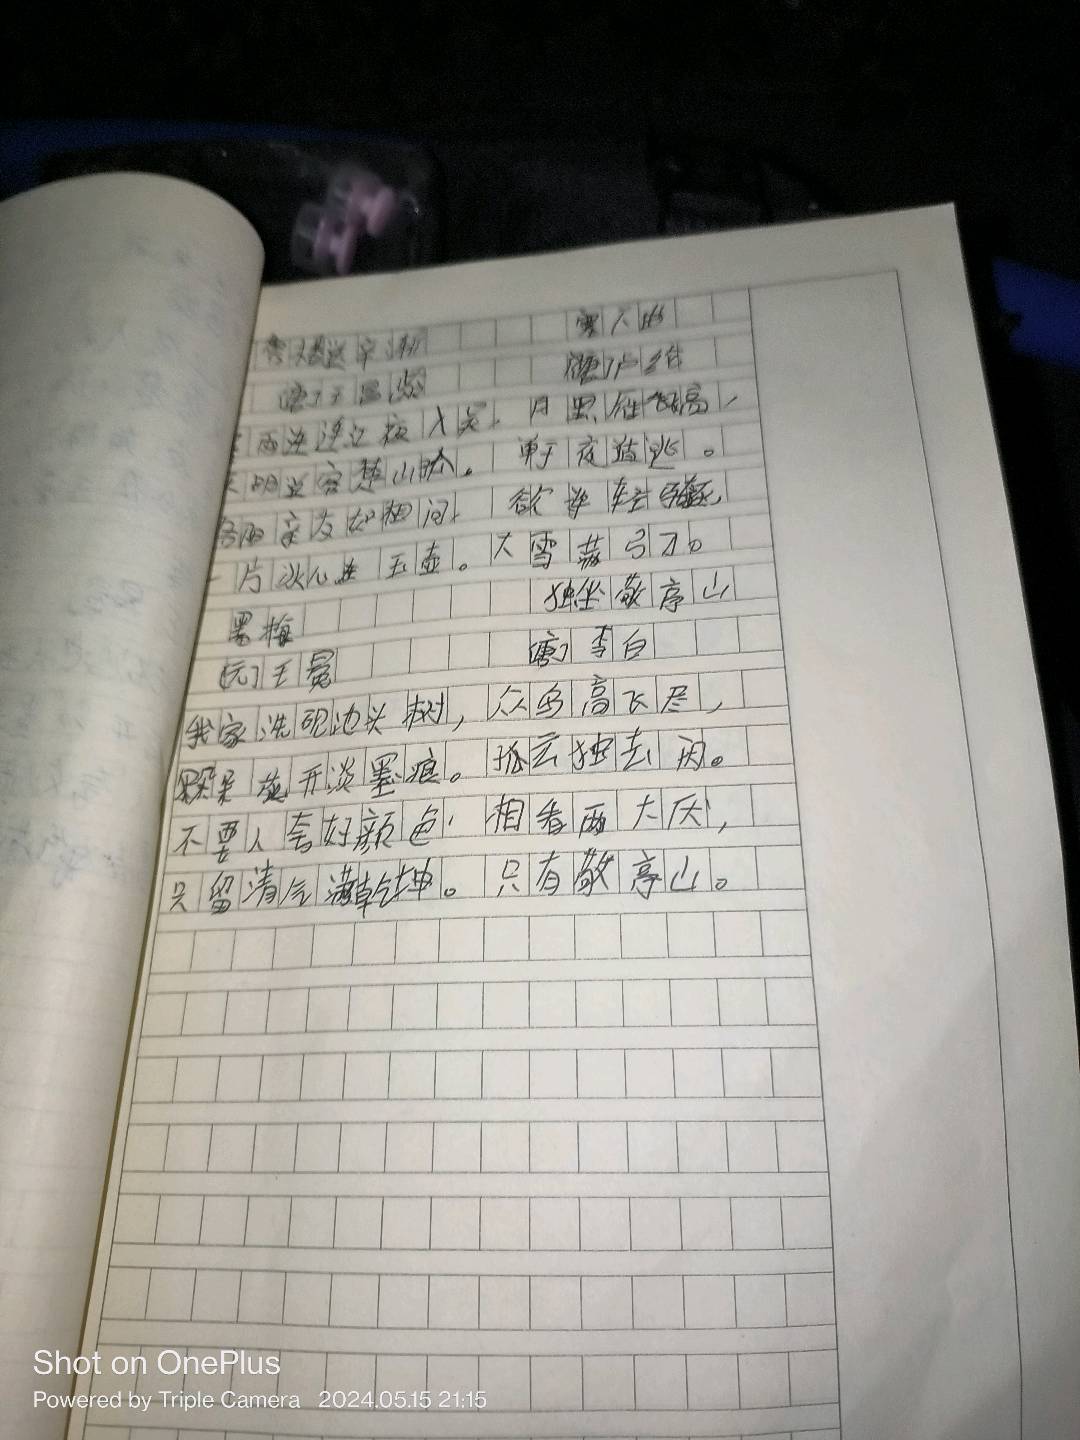 芙蓉楼送辛渐
[唐]王昌龄
寒雨连江夜入吴,
平明送客楚山孤。
洛阳亲友如相问,
一片冰心在玉壶。
墨梅
[元]王冕
我家洗砚池头树,
朵朵花开淡墨痕。
不要人夸好颜色,
只留清气满乾坤。
塞下曲
[唐]卢纶
月黑雁飞高,
单于夜遁逃。
欲将轻骑逐,
大雪满弓刀。
独坐敬亭山
[唐]李白
众鸟高飞尽,
孤云独去闲。
相看两不厌,
只有敬亭山。
Shot on OnePlus
Powered by Triple Camera 2024.05.15 21:15